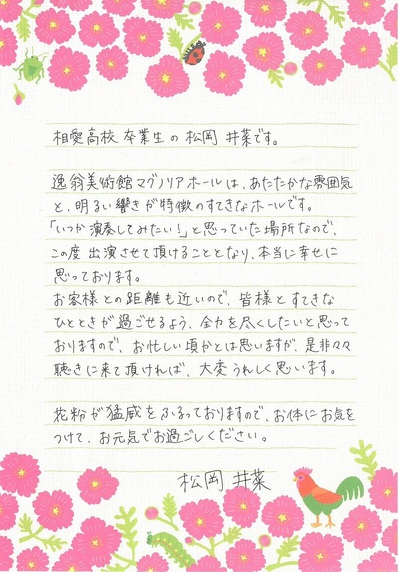 相愛高校 卒業生の 松岡 井菜です。
逸翁美術館マグノリアホールは、あたたかな雰囲気
と、明るい響きが特徴のすてきなホールです。
「いつか演奏してみたい!」と思っていた場所なので、
この度 出演させて頂けることとなり、本当に幸せに
思っております。
お客様との距離も近いので、皆様とすてきな
ひとときが過ごせるよう、全力を尽くしたいと思って
おりますので、お忙しい頃かとは思いますが、是非々々
聴きに来て頂ければ、大変うれしく思います。
花粉が猛威をふるっておりますので、お体にお気を
つけて、お元気でお過ごしください。
松岡 井菜